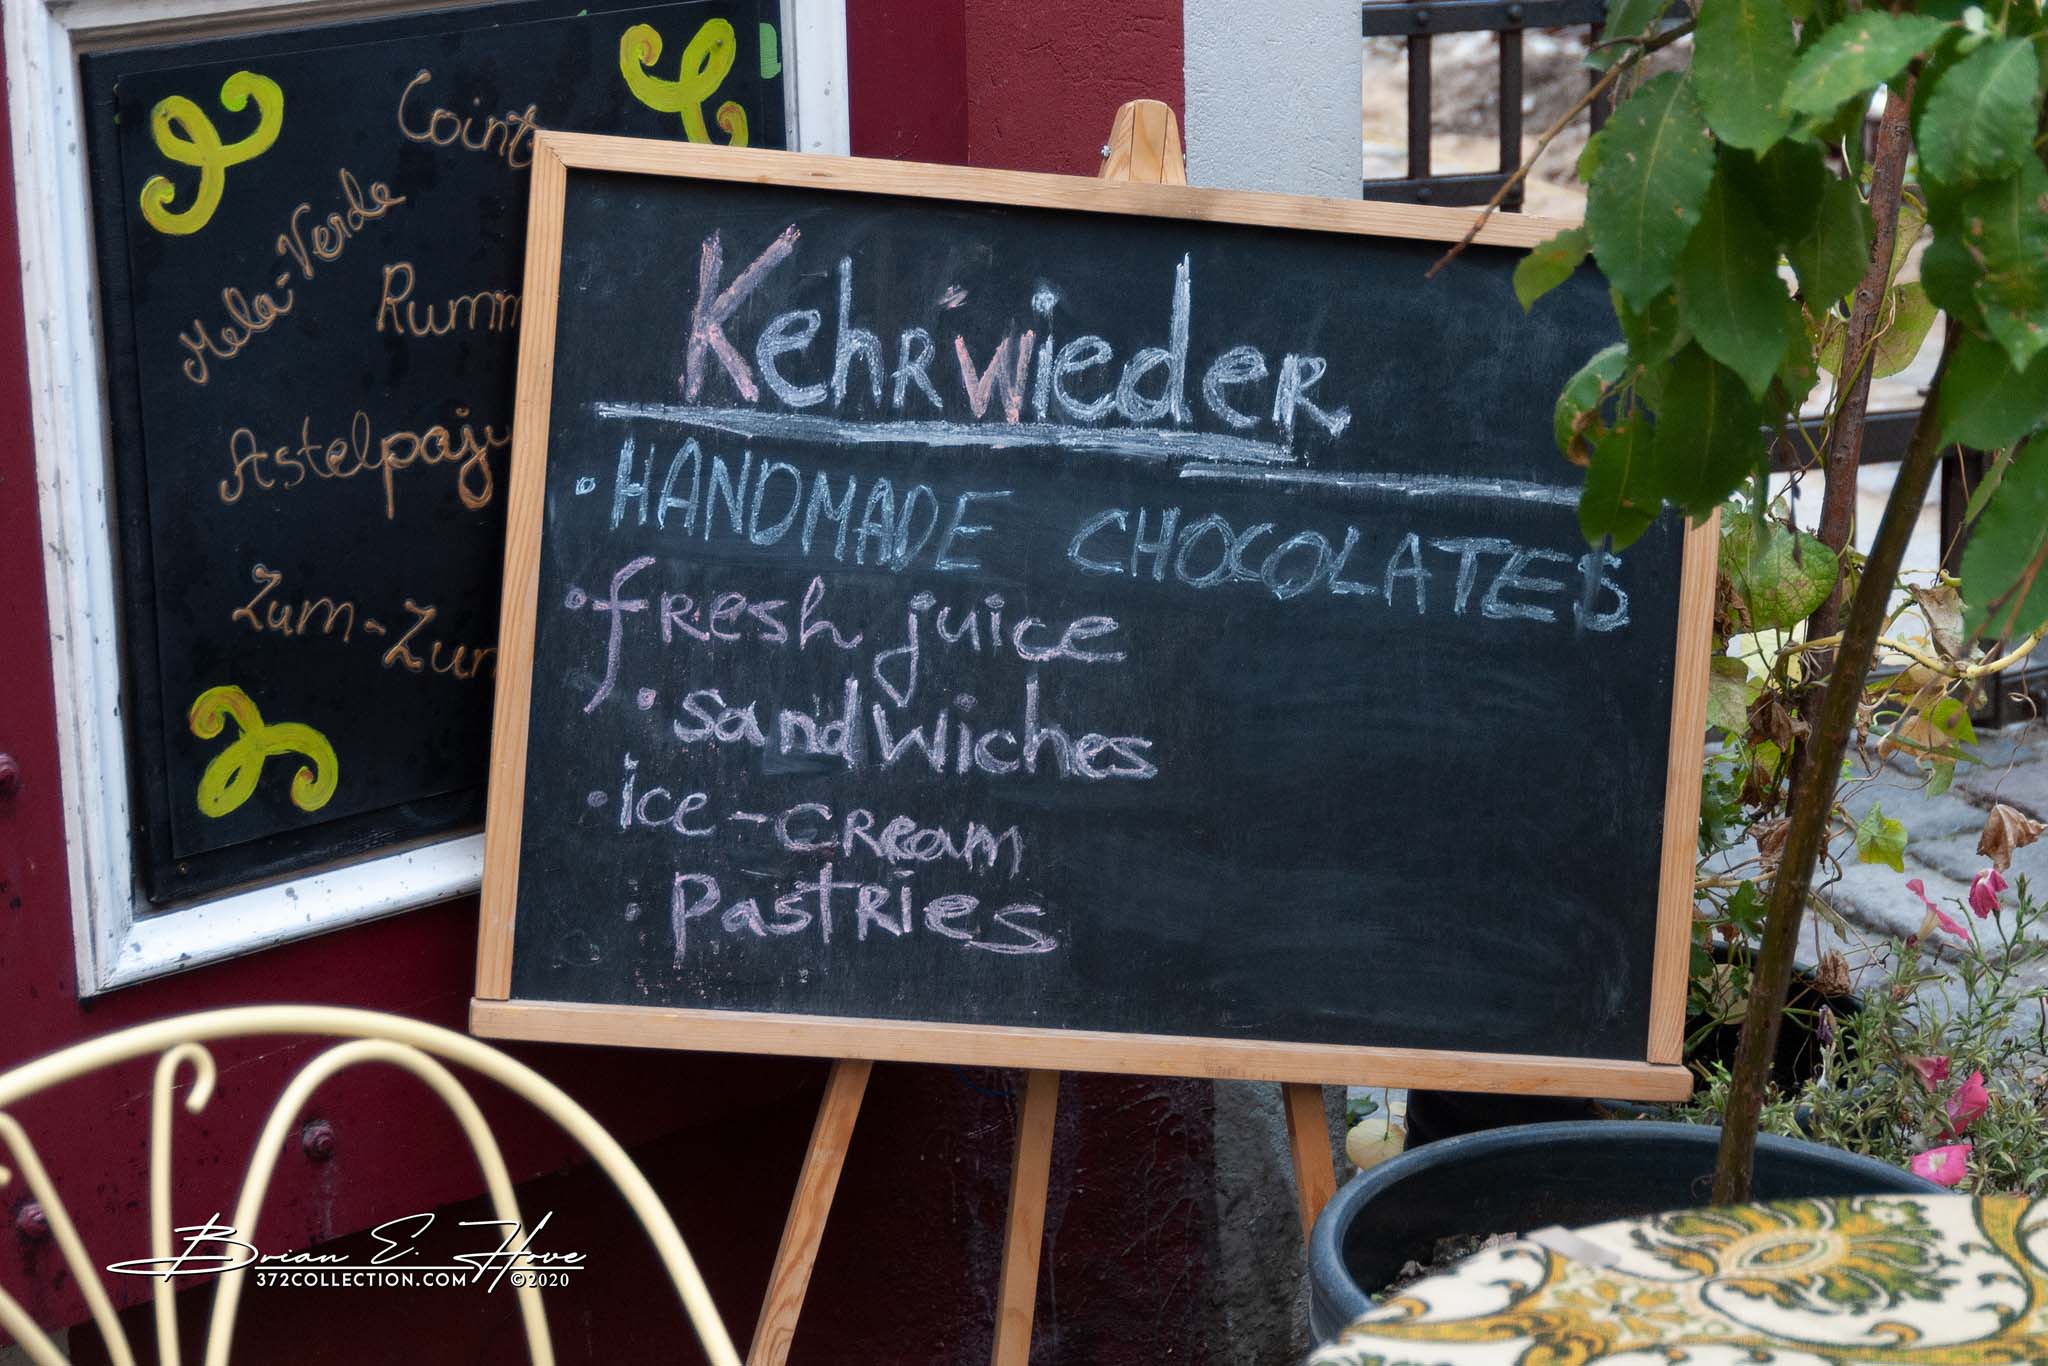 Mela-Verde
Rumm
Zum-Zum
Kehrwieder
· HANDMADE CHOCOLATES
· fresh juice
· sandwiches
· ice-cream
· pastries
Brian E. Hove
372COLLECTION.COM ©2020